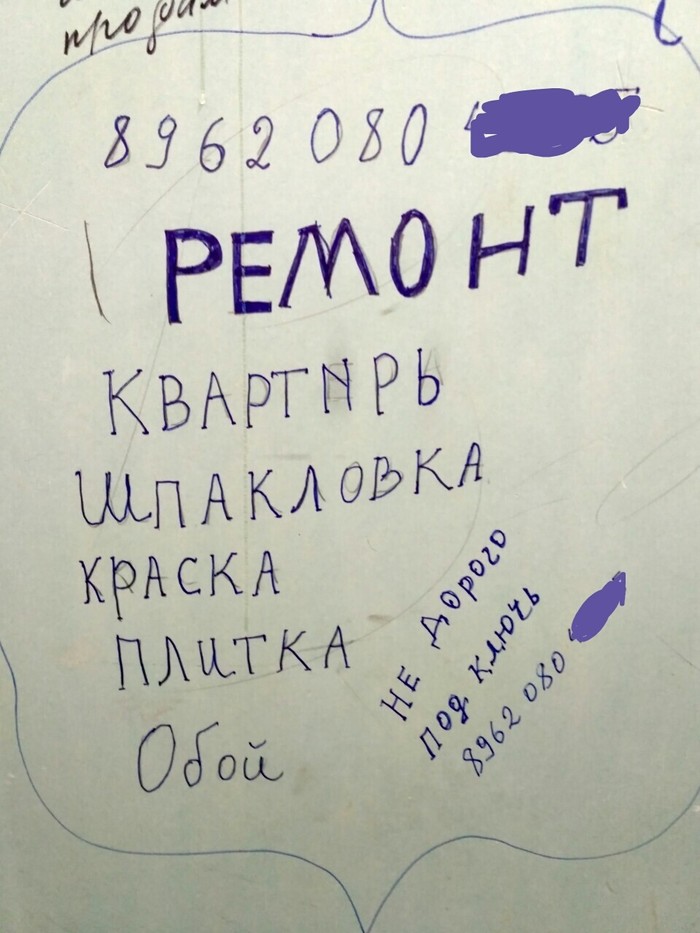 продам
8962 080
РЕМОНТ
КВАРТИРЬ
ШПАКЛОВКА
КРАСКА
ПЛИТКА
Обой
НЕ ДОРОГО
ПОД КЛЮЧЬ
8962 080